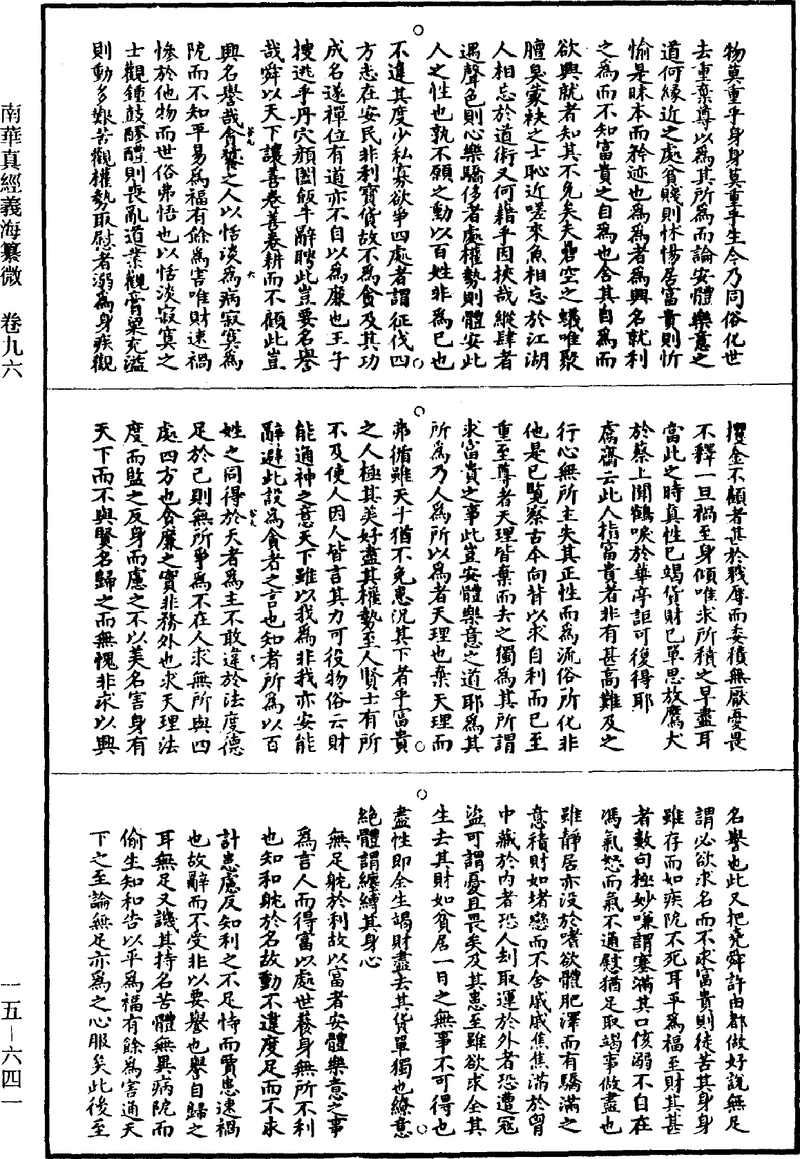 物莫重乎身身莫重乎生今乃同俗化世
去重棄尊以為其所為而論安體樂意之
道何緣近之處貧賤則怵惕居富貴則忻
愉是昧本而矜迹也為為者為興名就利
之為而不知富貴之自為也舍其自為而
欲興就者知其不免矣夫甕空之蟻唯聚
膻臭蒙袂之士恥近嗟來魚相忘於江湖
人相忘於道術又何藉乎因挾哉縱肆者
遇聲色則心樂驕侈者處權勢則體安此
人之性也孰不願之動以百姓非為己也
不違其度少私寡欲爭四處者謂征伐四
方志在安民非利寶貨故不為貪及其功
成名遂禪位有道亦不自以為廉也王子
搜逃乎丹穴顏闔飯牛辭聘此豈要名譽
哉舜以天下讓善卷善卷耕而不顧此豈
興名譽哉貪饕之人以恬淡為病寂寞為
阨而不知平易為福有餘為害唯財速禍
慘於他物而世俗弗悟也以恬淡寂寞之
士觀鍾鼓醪醴則喪亂道業觀膏粱充溢
則動多艱苦觀權勢取慰者溺為身疾觀
攫金不顧者甚於戮辱而委積無厭憂畏
不釋一旦禍至身傾唯求所積之早盡耳
當此之時真性已竭貨財已單思放鷹犬
於蔡上聞鶴唳於華亭詎可復得耶
鬳齋云此人指富貴者非有甚高難及之
行心無所主失其正性而為流俗所化非
他是已覽察古今向背以求自利而已至
重至尊者天理皆棄而去之獨為其所謂
求富貴之事此豈安體樂意之道耶為其
所為乃人為所以為者天理也棄天理而
弗循雖天子猶不免患況其下者乎富貴
之人極其美好盡其權勢至人賢士有所
不及使人因人皆言其力可役物俗云財
能通神之意天下雖以我為非我亦安能
辭避此設為貪者之言也知者所為以百
姓之同得於天者為主不敢違於法度德
足於己則無所爭為不在人求無所與四
處四方也貪廉之實非務外也求天理法
度而監之反身而慮之不以美名害身有
天下而不與賢名歸之而無愧非求以興
名譽也此又把堯舜許由都做好說無足
謂必欲求名而不求富貴則徒苦其身身
雖存而如疾阨不死耳平為福至財其甚
者數句極妙嗛謂塞滿其口侅溺不自在
馮氣怒而氣不通慰猶足取竭事做盡也
雖靜居亦沒於嗜欲體肥澤而有驕滿之
意積財如堵戀而不舍戚戚焦焦滿於胷
中藏於內者恐人刦取運於外者恐遭寇
盜可謂憂且畏矣及其患至雖欲求全其
生去其財如貧居一日之無事不可得也
盡性即全生竭財盡去其貨單獨也繚意
絕體謂纏縛其身心
無足躭於利故以富者安體樂意之事
為言人而得富以處世養身無所不利
也知和躭於名故動不違度足而不求
計患慮反知利之不足恃而贾患速禍
也故辭而不受非以要譽也譽自歸之
耳無足又譏其持名苦體無異病阨而
偷生知和告以平為福有餘為害通天
下之至論無足亦為之心服矣此後至
南華真經義海纂微　卷九六
一五－六四一